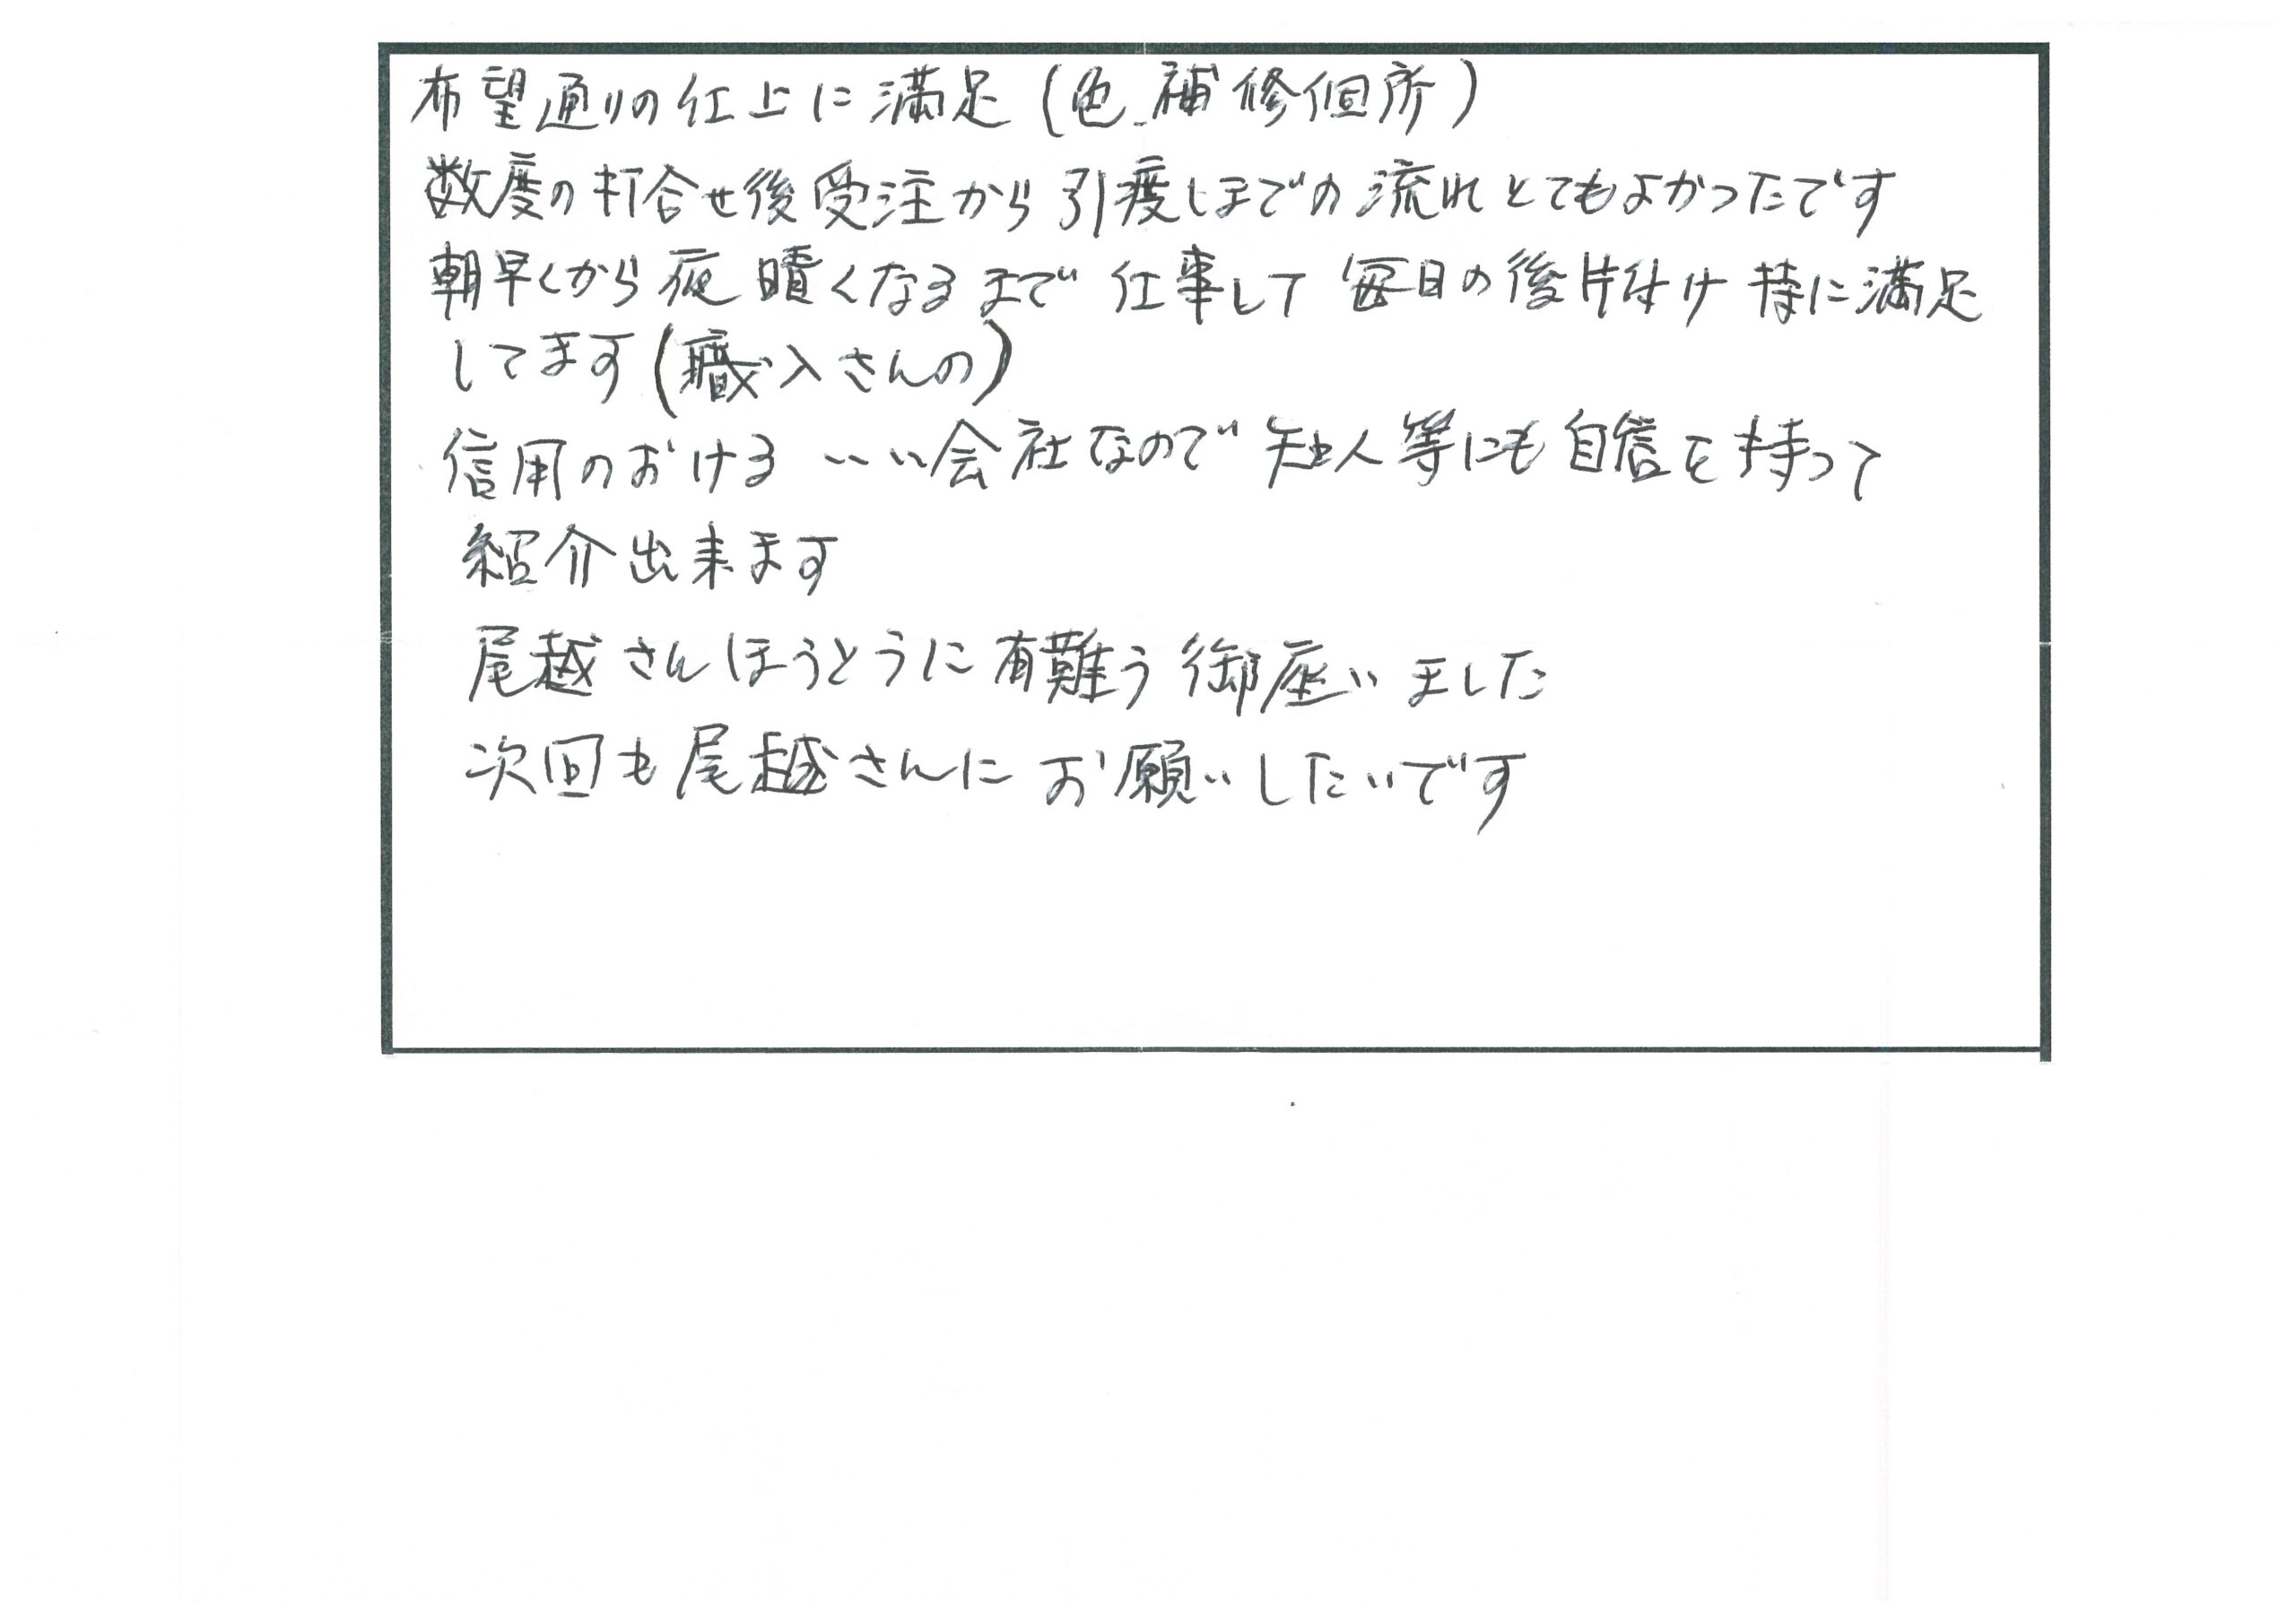 希望通りの仕上に満足(色、補修個所)
数度の打合せ後受注から引渡しまでの流れとてもよかったです
朝早くから夜暗くなるまで仕事して毎日の後片付け特に満足
してます(職人さんの)
信用のおけるいい会社なので知人等にも自信を持って
紹介出来ます
尾越さんほうとうに有難う御座いました
次回も尾越さんにお願いしたいです